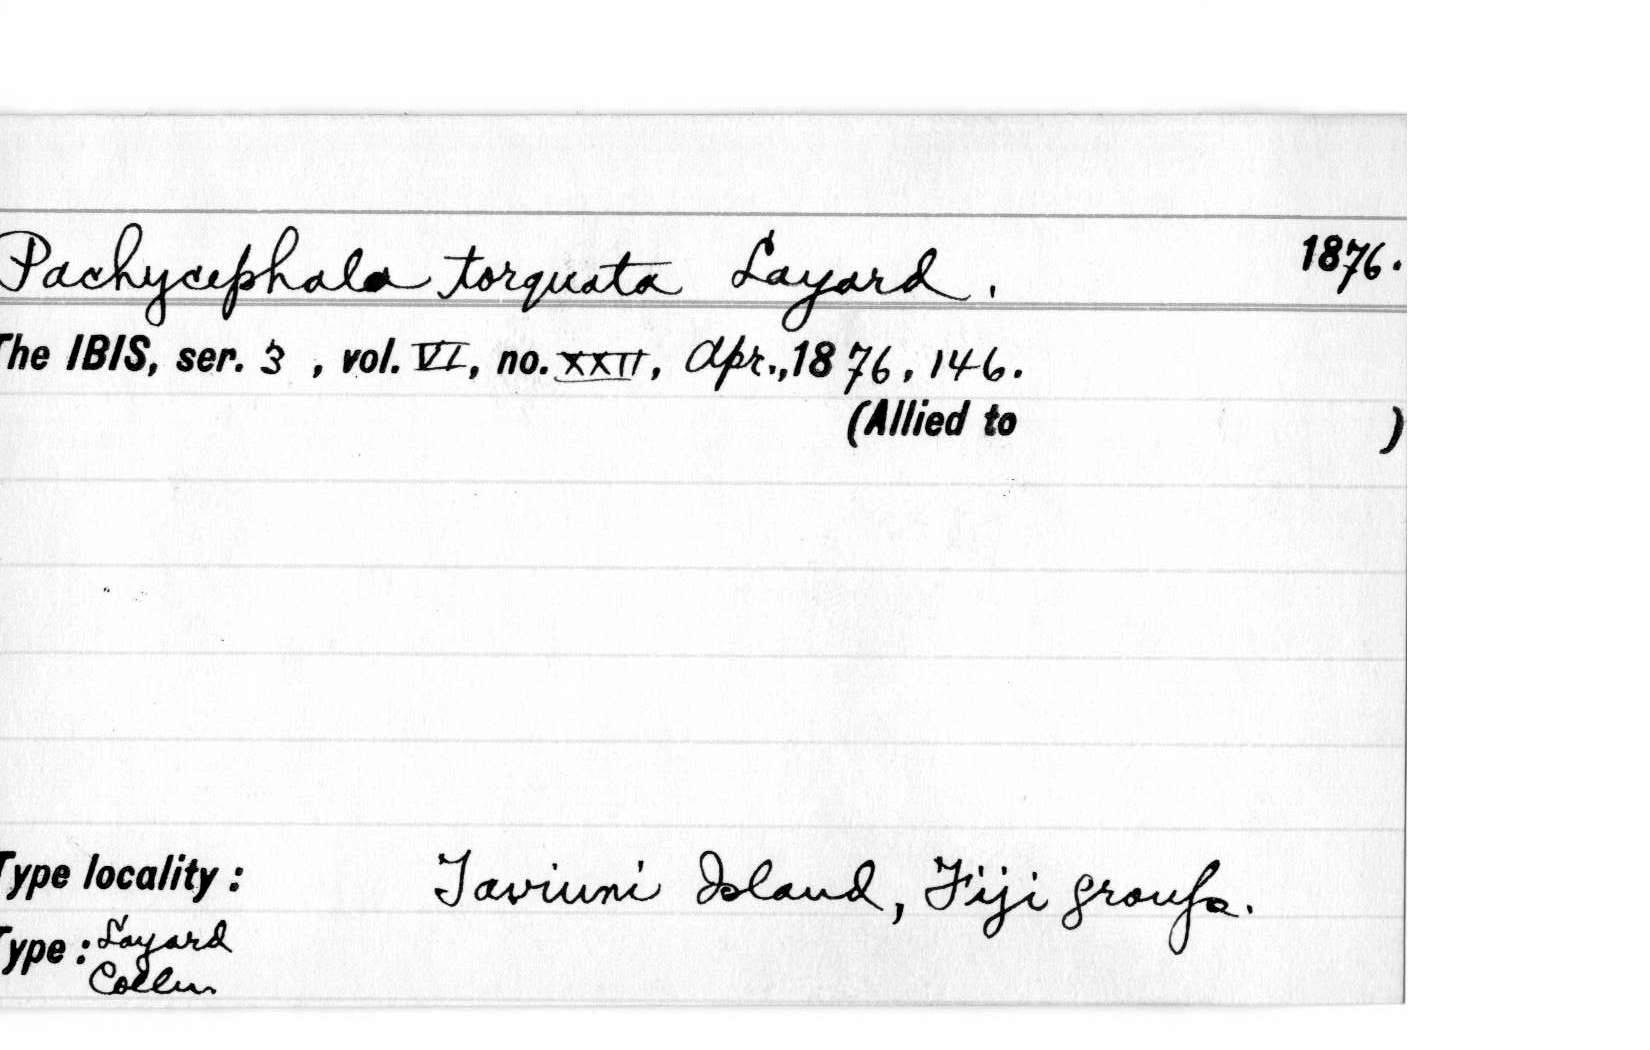 Pachycephala torquata Layard. 1876.
The IBIS, ser. 3, vol. VI, no. XXII, Apr., 1876, 146.
(Allied to )
Type locality: Taviuni Island, Fiji group.
Type: Layard
Colln